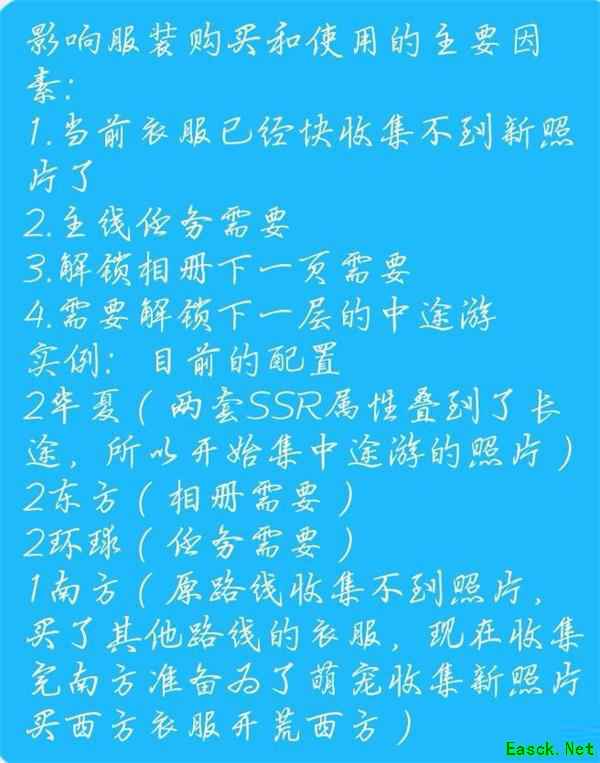 影响服装购买和使用的主要因
素：
1.当前衣服已经快收集不到新照
片了
2.主线任务需要
3.解锁相册下一页需要
4.需要解锁下一层的中途游
实例：目前的配置
2华夏（两套SSR属性叠到了长
途，所以开始集中途游的照片）
2东方（相册需要）
2环球（任务需要）
1南方（原路线收集不到照片，
买了其他路线的衣服，现在收集
完南方准备为了萌宠收集新照片
买西方衣服开荒西方）
Easck.Net